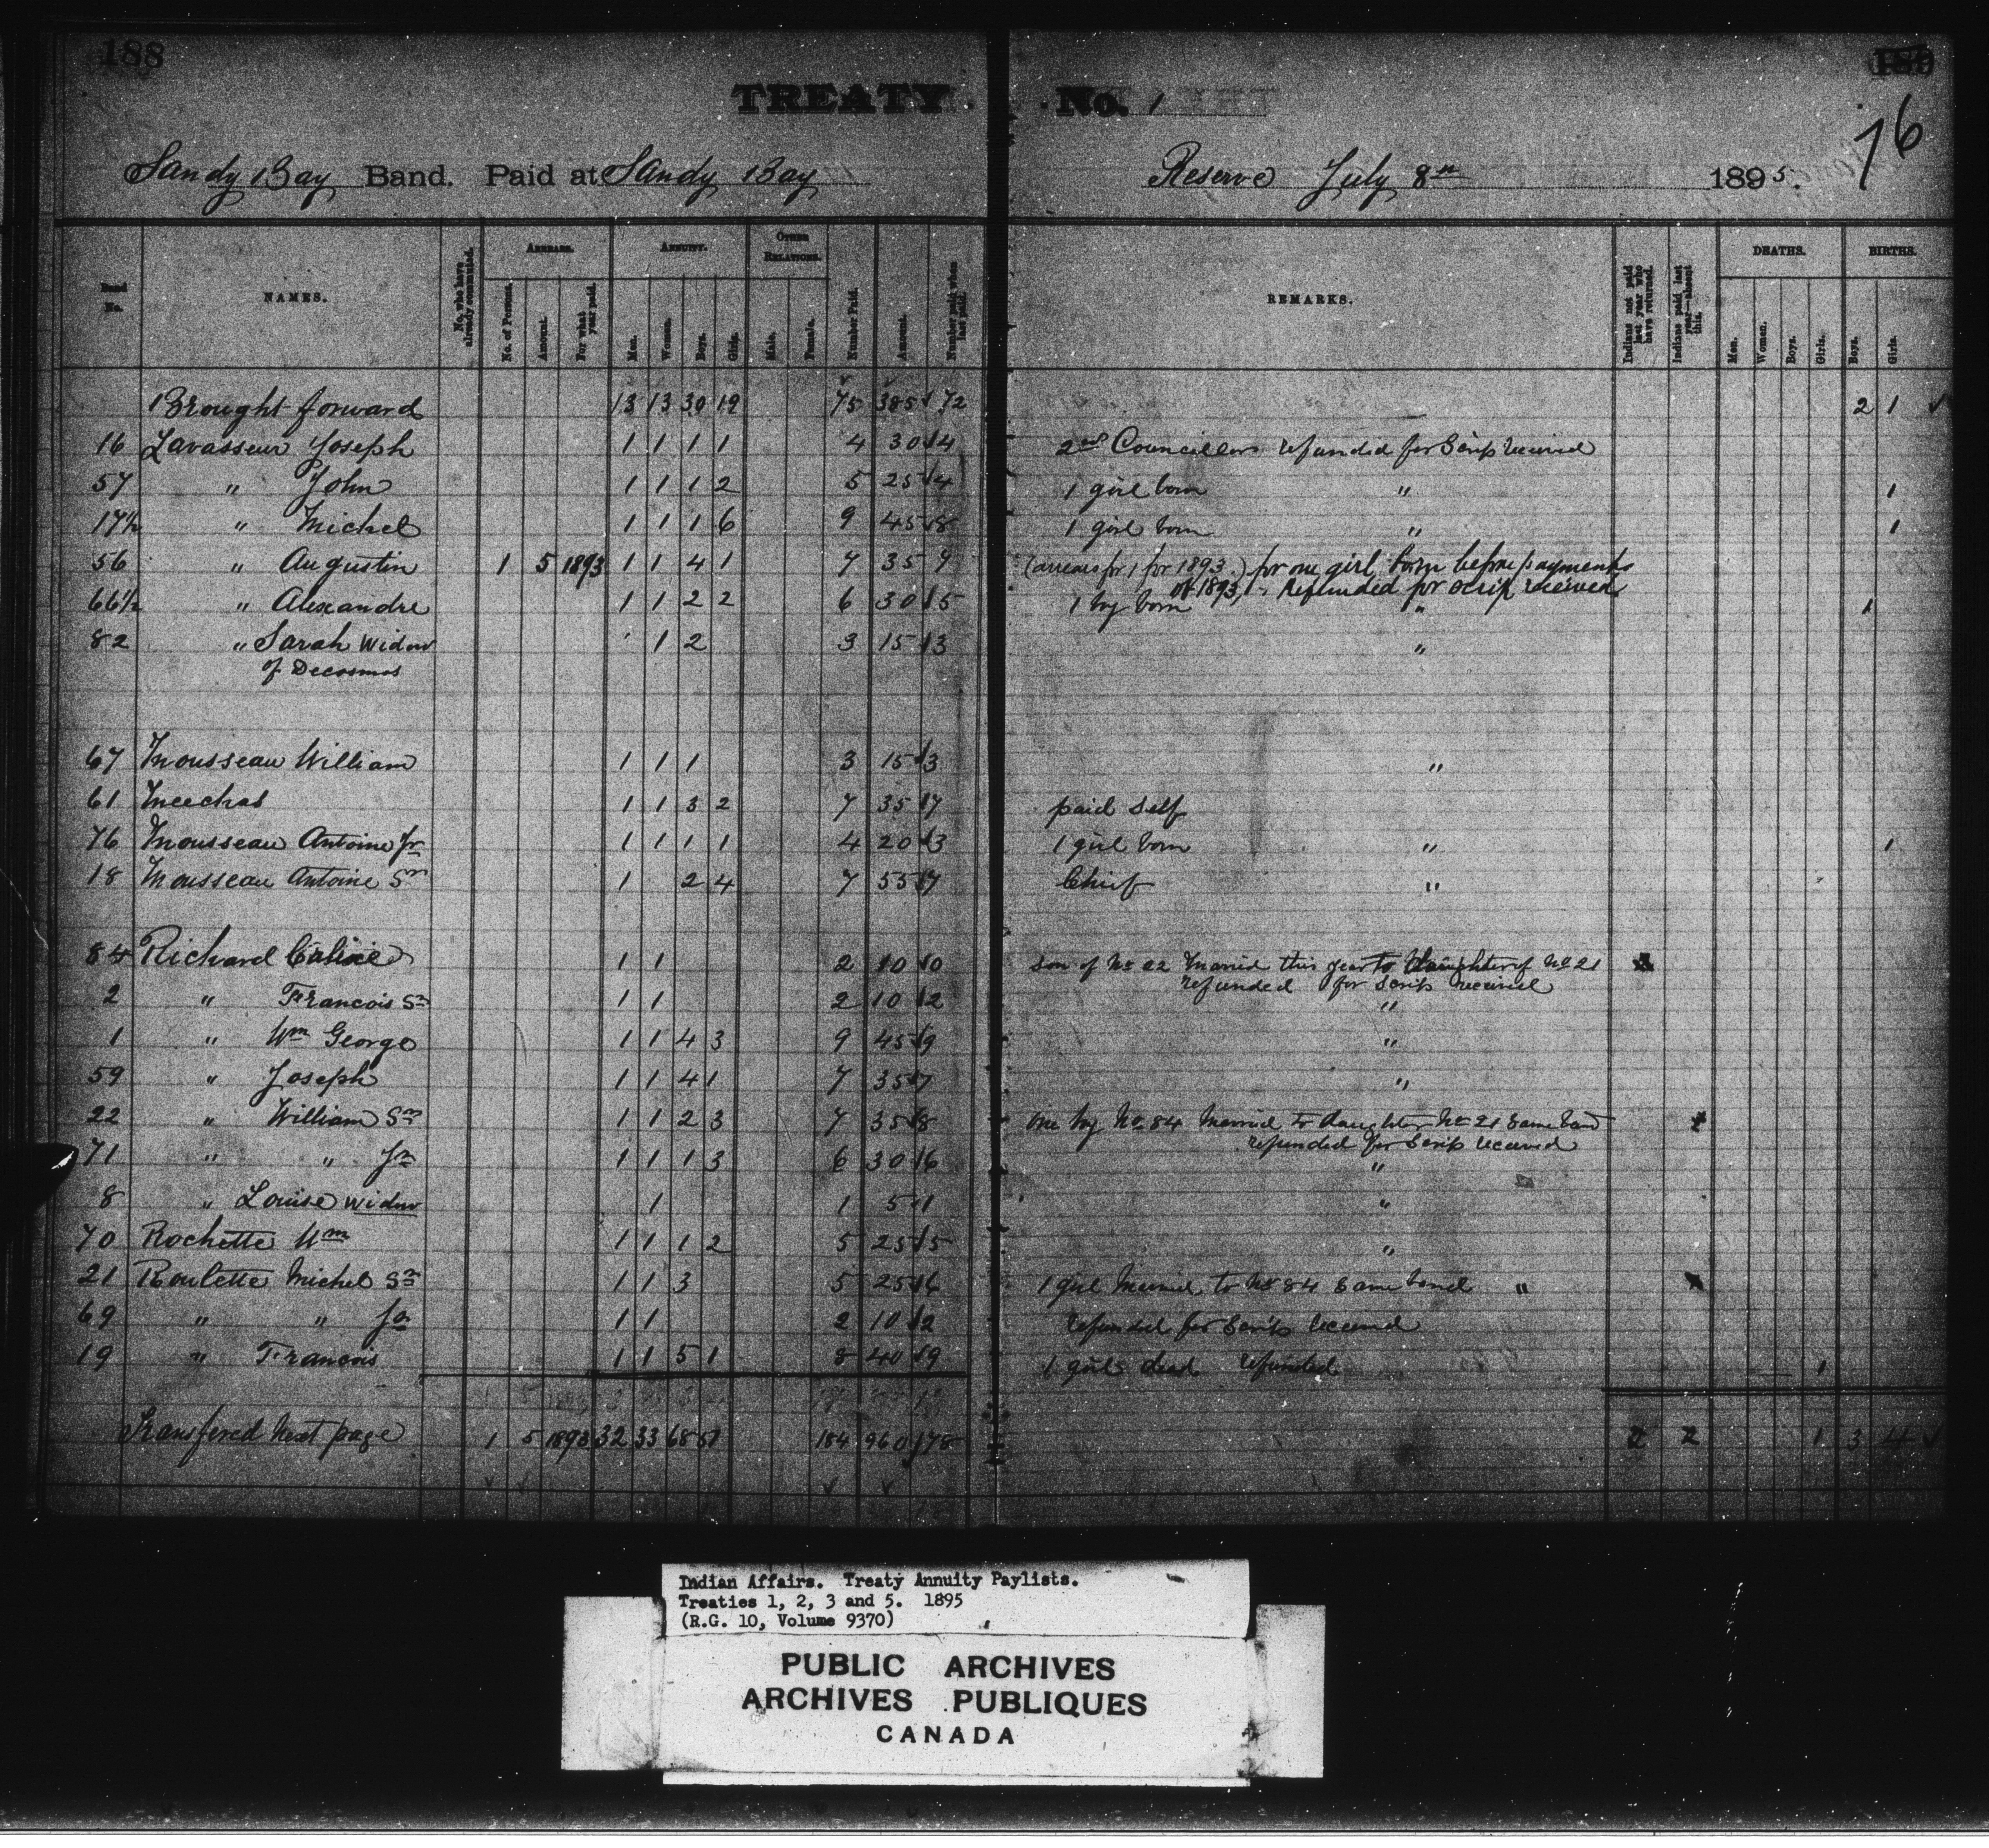 188
TREATY No. 1
76
Sandy Bay Band. Paid at Sandy Bay Reserve July 8th 1895.
Band No. NAMES. No. who have already commuted. ARREARS. No. of Persons. Amount. For what year paid. ANNUITY. Men. Women. Boys. Girls. OTHER RELATIONS. Male. Female. Number Paid. Amount. Number paid when last paid. REMARKS. Indians not paid last year who have returned. Indians paid last year—absent this. DEATHS. Men. Women. Boys. Girls. BIRTHS. Boys. Girls.
Brought forward 13 13 30 19 75 385 72 2 1 ✓
16 Lavasseur Joseph 1 1 1 1 4 30 4 2nd Councillor refunded for Scrip received
57 " John 1 1 1 2 5 25 4 1 girl born " 1
17½ " Michel 1 1 1 6 9 45 8 1 girl born " 1
56 " Augustin 1 5 1893 1 1 4 1 7 35 7 (arrears for 1 for 1893.) for one girl born before payments
of 1893, Refunded for scrip received
66½ " Alexandre 1 1 2 2 6 30 5 1 boy born " 1
82 " Sarah Widow 1 2 3 15 3 "
of Decosmos
67 Mousseau William 1 1 1 3 15 3 "
61 Meechas 1 1 3 2 7 35 7 paid self
76 Mousseau Antoine Jr 1 1 1 1 4 20 3 1 girl born " 1
18 Mousseau Antoine Sr 1 2 4 7 55 7 Chief "
84 Richard 1 1 2 10 0 Son of No 22 Married this year to Daughter of No 21
refunded for Scrip received
2 " Francois Sr 1 1 2 10 2 "
1 " Wm George 1 1 4 3 9 45 9 "
59 " Joseph 1 1 4 1 7 35 7 "
22 " William Sr 1 1 2 3 7 35 8 One boy No 84 Married to daughter No 21 Same band
refunded for Scrip received
71 " " Jr 1 1 1 3 6 30 6 "
8 " Louise Widow 1 1 5 1 "
70 Rochette Wm 1 1 1 2 5 25 5 "
21 Roulette Michel Sr 1 1 3 5 25 6 1 girl Married to No 84 Same band "
69 " " Jr 1 1 2 10 2 refunded for Scrip received
19 " Francois 1 1 5 1 8 40 9 1 girl dead refunded 1
Transfered Next page 1 5 1893 32 33 68 51 184 960 178 2 2 1 3 4 ✓
Indian Affairs. Treaty Annuity Paylists.
Treaties 1, 2, 3 and 5. 1895
(R.G. 10, Volume 9370)
PUBLIC ARCHIVES
ARCHIVES PUBLIQUES
CANADA